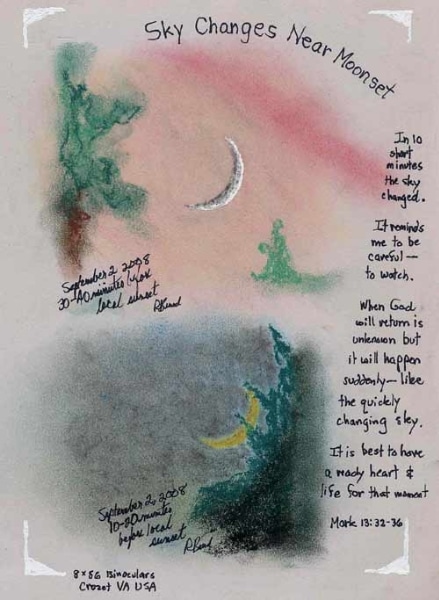 Sky Changes Near Moonset
In 10
short
minutes
the sky
changed.
It reminds
me to be
careful—
to watch.
When God
will return is
unknown but
it will happen
suddenly—like
the quickly
changing sky.
It is best to have
a ready heart &
life for that moment
Mark 13:32-36
September 2 2008
30-40 minutes
local sunset
September 2, 2008
10-20 minutes
before local
sunset
8x56 Binoculars
Crozet VA USA